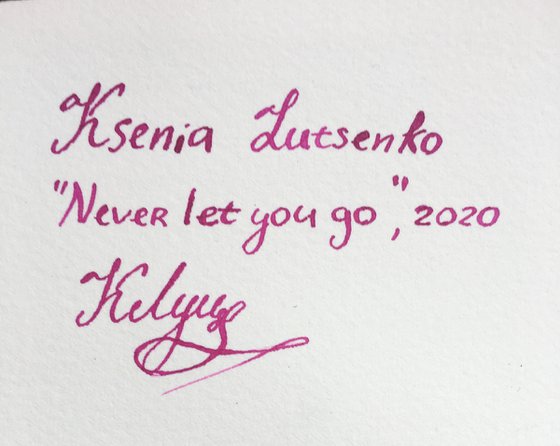 Ksenia Lutsenko
"Never let you go", 2020